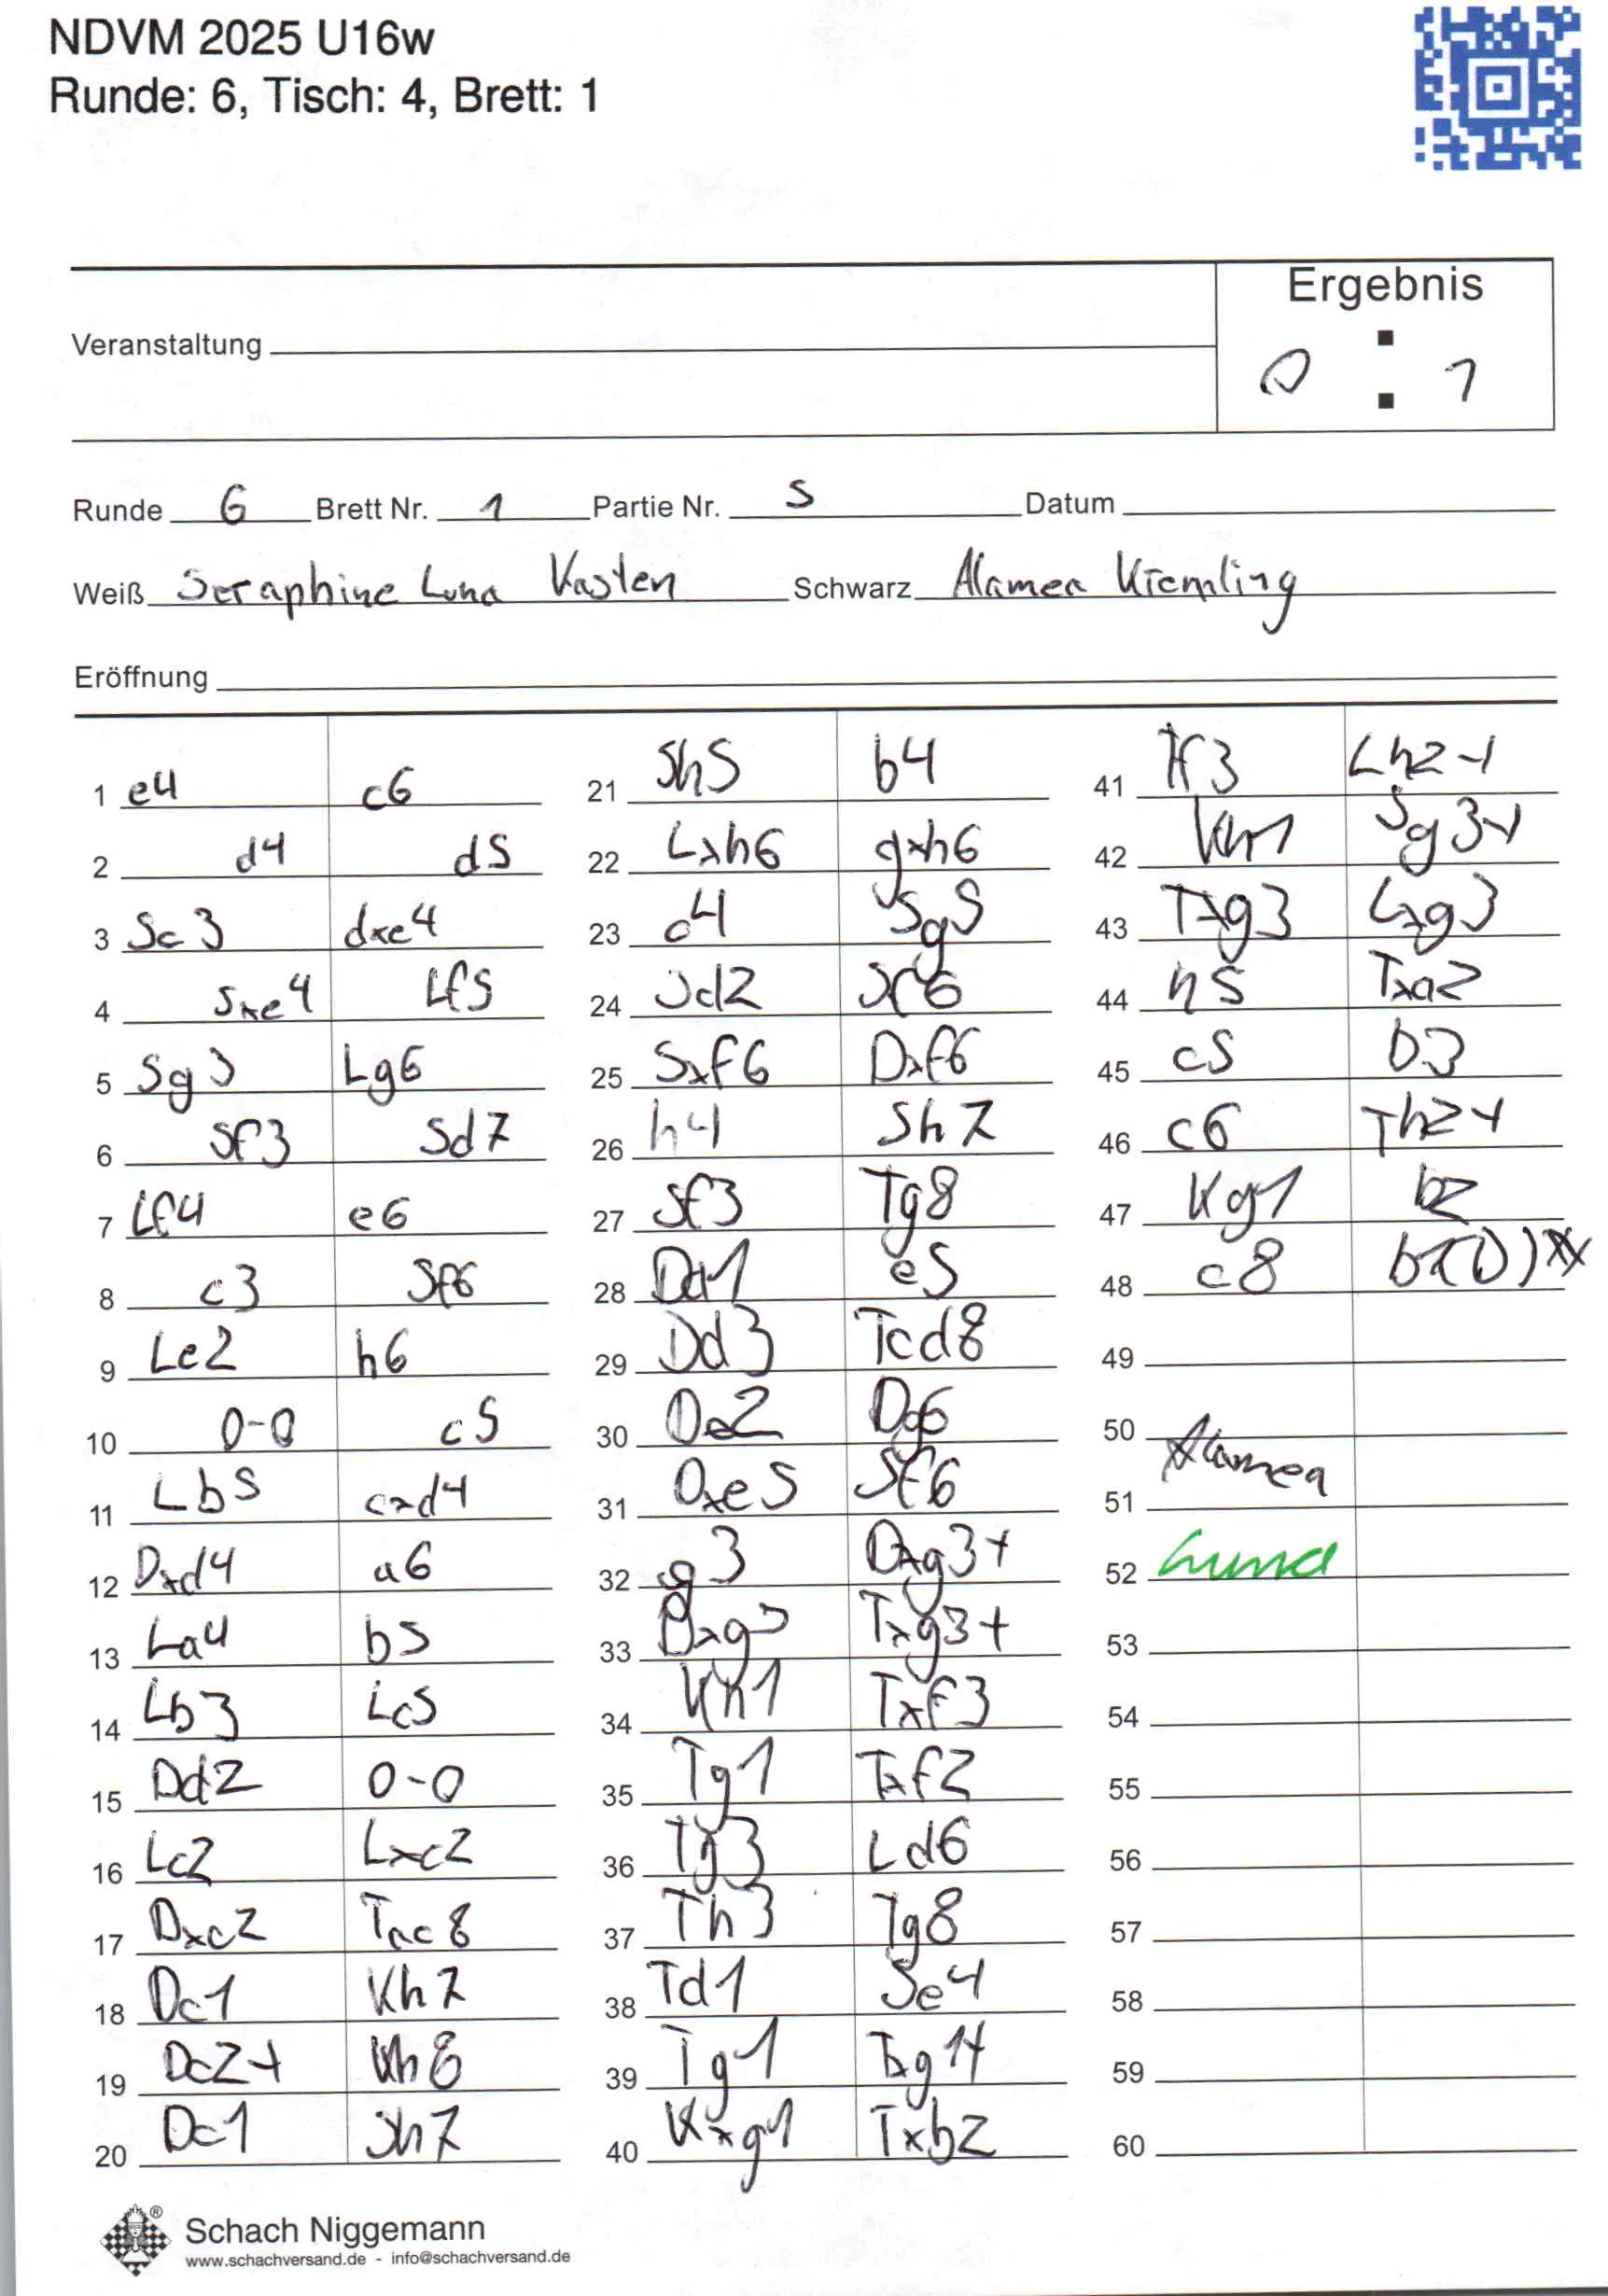 NDVM 2025 U16w
Runde: 6, Tisch: 4, Brett: 1
Ergebnis
Veranstaltung
0 : 1
Runde 6 Brett Nr. 1 Partie Nr. 5 Datum
Weiß Seraphine Luna Kasten Schwarz Alamea Kiemling
Eröffnung
1 e4 c6
2 d4 d5
3 Sc3 dxe4
4 Sxe4 Lf5
5 Sg3 Lg6
6 Sf3 Sd7
7 Lf4 e6
8 c3 Sf6
9 Le2 h6
10 0-0 c5
11 Lb5 cxd4
12 Dxd4 a6
13 La4 b5
14 Lb3 Lc5
15 Dd2 0-0
16 Lc2 Lxc2
17 Dxc2 Tac8
18 Dc1 Kh7
19 Dc2+ Kh8
20 Dc1 Sh7
21 Sh5 b4
22 Lxh6 gxh6
23 c4 Sg5
24 Sd2 Sf6
25 Sxf6 Dxf6
26 h4 Sh7
27 Sf3 Tg8
28 Dd1 e5
29 Dd3 Tcd8
30 De2 Dg6
31 Dxe5 Sf6
32 g3 Dxg3+
33 Dxg3 Txg3+
34 Kh1 Txf3
35 Tg1 Txf2
36 Tg3 Ld6
37 Th3 Tg8
38 Td1 Se4
39 Tg1 Txg1+
40 Kxg1 Txb2
41 Tf3 Lh2+
42 Kh1 Sg3+
43 Txg3 Lxg3
44 h5 Txa2
45 c5 b3
46 c6 Th2+
47 Kg1 b2
48 c8 b1(D)
49
50
Alamea
51
52 Luna
53
54
55
56
57
58
59
60
Schach Niggemann
www.schachversand.de - info@schachversand.de